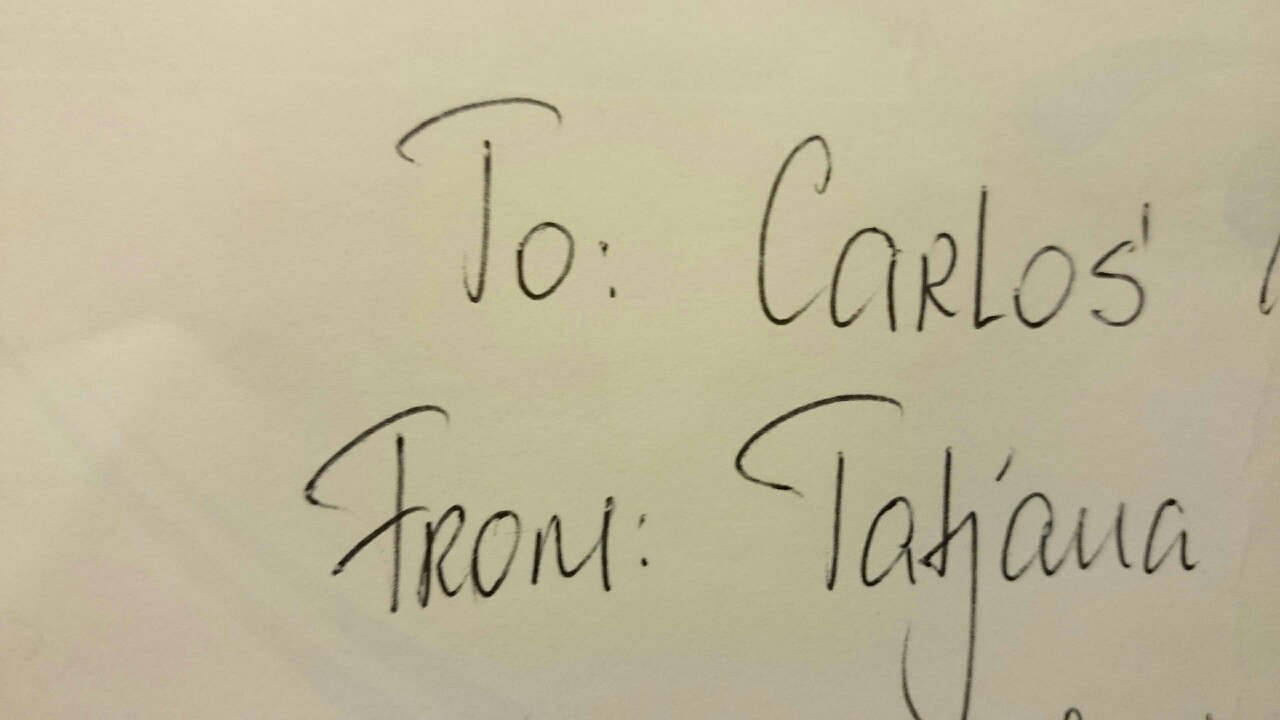 To: Carlos'
From: Tatjana